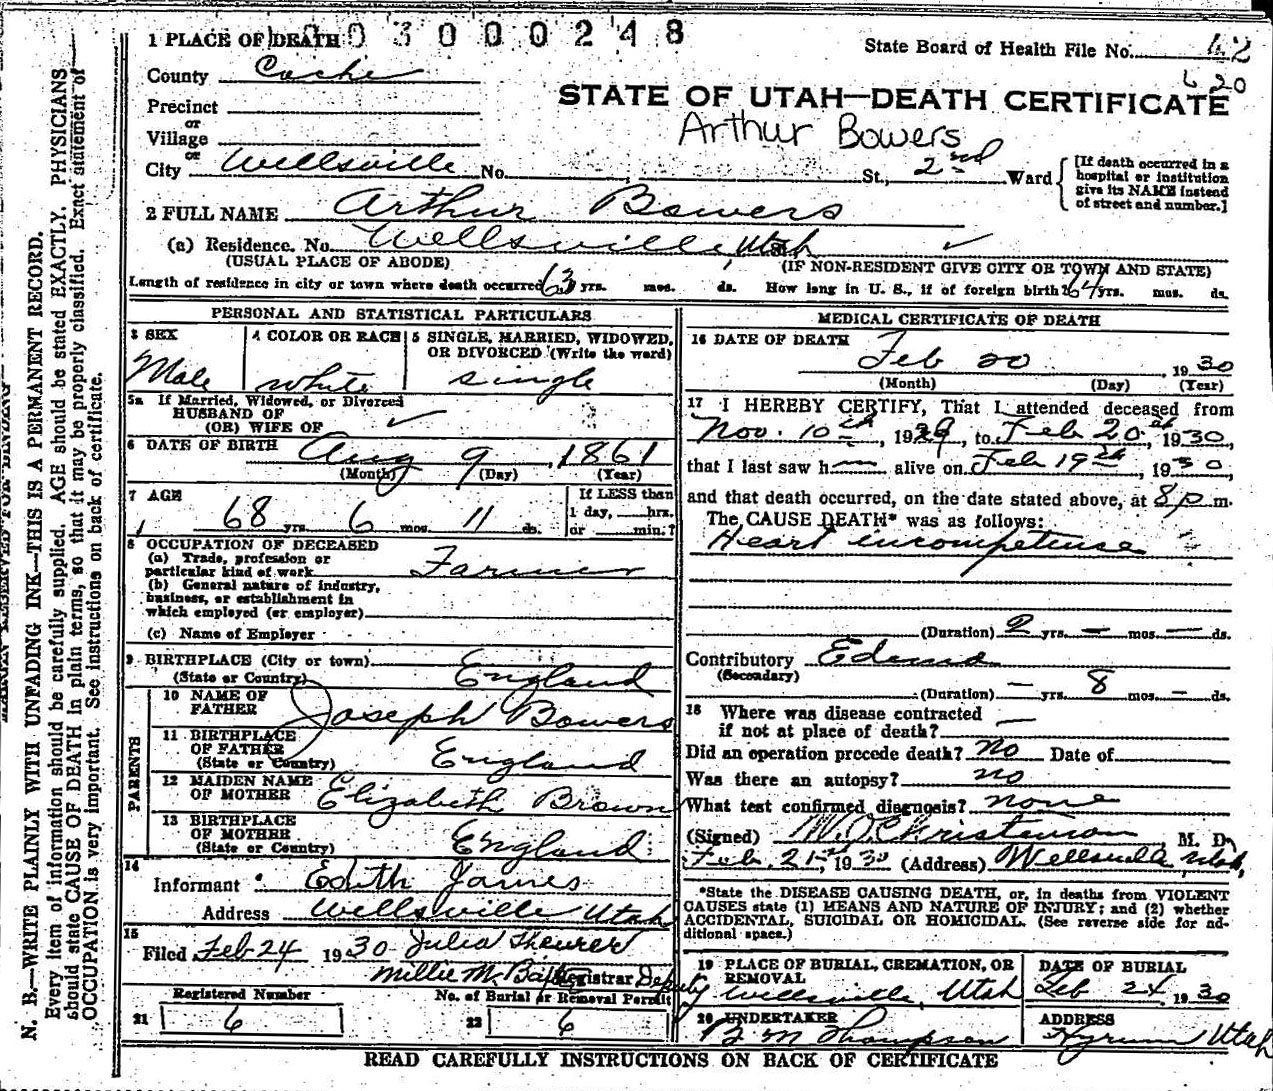 0 3 0 0 0 0 2 4 8
1 PLACE OF DEATH
State Board of Health File No. 42
620
County Cache
STATE OF UTAH—DEATH CERTIFICATE
Precinct
Arthur Bowers
or
Village
or
City Wellsville No. St., 2nd Ward
[If death occurred in a
hospital or institution
give its NAME instead
of street and number.]
2 FULL NAME Arthur Bowers
(a) Residence. No. Wellsville, Utah
(USUAL PLACE OF ABODE) (IF NON-RESIDENT GIVE CITY OR TOWN AND STATE)
Length of residence in city or town where death occurred 63 yrs. mos. ds. How long in U. S., if of foreign birth? 64 yrs. mos. ds.
PERSONAL AND STATISTICAL PARTICULARS
3 SEX
Male
4 COLOR OR RACE
white
5 SINGLE, MARRIED, WIDOWED,
OR DIVORCED (Write the word)
single
5a If Married, Widowed, or Divorced
HUSBAND OF
(OR) WIFE OF
6 DATE OF BIRTH Aug 9, 1861
(Month) (Day) (Year)
7 AGE
68 yrs. 6 mos. 11 ds.
If LESS than
1 day, hrs.
or min.?
8 OCCUPATION OF DECEASED
(a) Trade, profession or
particular kind of work Farmer
(b) General nature of industry,
business, or establishment in
which employed (or employer)
(c) Name of Employer
9 BIRTHPLACE (City or town)
(State or Country) England
PARENTS
10 NAME OF
FATHER Joseph Bowers
11 BIRTHPLACE
OF FATHER
(State or Country) England
12 MAIDEN NAME
OF MOTHER Elizabeth Brown
13 BIRTHPLACE
OF MOTHER
(State or Country) England
14
Informant Edith James
Address Wellsville Utah
15
Filed Feb 24 1930 Julia Theurer
Millie M. Registrar Deputy
Registered Number
21 6
No. of Burial or Removal Permit
22 6
MEDICAL CERTIFICATE OF DEATH
16 DATE OF DEATH
Feb 20, 1930
(Month) (Day) (Year)
17 I HEREBY CERTIFY, That I attended deceased from
Nov. 10th, 1929, to Feb 20th, 1930,
that I last saw h alive on Feb 19th, 1930,
and that death occurred, on the date stated above, at 8 p m.
The CAUSE DEATH* was as follows:
Heart incompetense
(Duration) 2 yrs. — mos. — ds.
Contributory Edema
(Secondary)
(Duration) — yrs. 8 mos. — ds.
18 Where was disease contracted
if not at place of death? —
Did an operation precede death? no Date of
Was there an autopsy? no
What test confirmed diagnosis? none
(Signed) W.O. Christenson M. D.
Feb. 21st, 1930 (Address) Wellsville Utah,
*State the DISEASE CAUSING DEATH, or, in deaths from VIOLENT
CAUSES state (1) MEANS AND NATURE OF INJURY; and (2) whether
ACCIDENTAL, SUICIDAL OR HOMICIDAL. (See reverse side for ad-
ditional space.)
19 PLACE OF BURIAL, CREMATION, OR
REMOVAL
Wellsville, Utah
DATE OF BURIAL
Feb 24 1930
20 UNDERTAKER
B. M. Thompson
ADDRESS
Hyrum Utah
READ CAREFULLY INSTRUCTIONS ON BACK OF CERTIFICATE
MARGIN RESERVED FOR BINDING
N. B.—WRITE PLAINLY WITH UNFADING INK—THIS IS A PERMANENT RECORD.
Every item of information should be carefully supplied. AGE should be stated EXACTLY. PHYSICIANS
should state CAUSE OF DEATH in plain terms, so that it may be properly classified. Exact statement of
OCCUPATION is very important. See instructions on back of certificate.